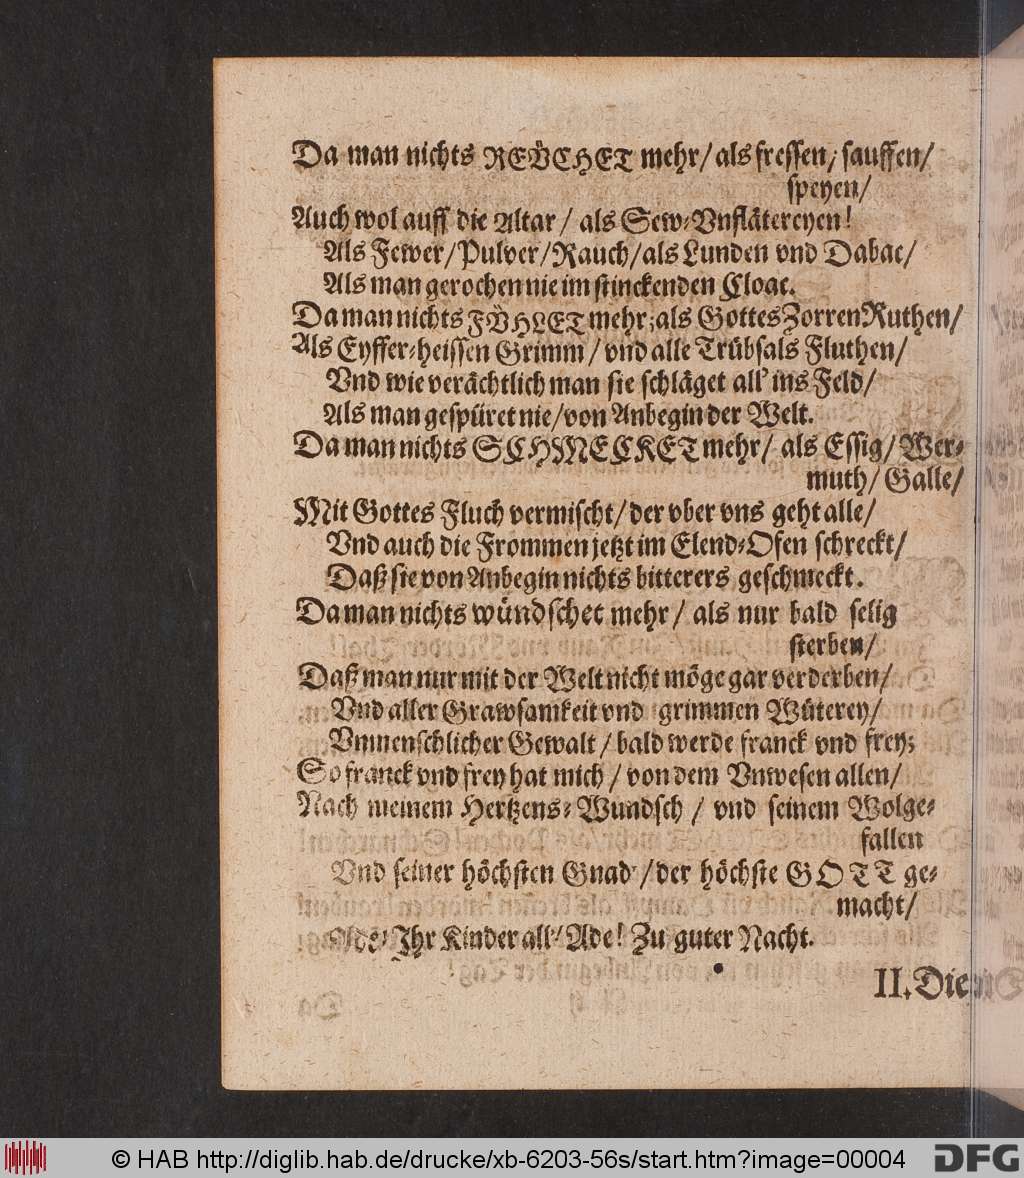 Da man nichts REÜCHET mehr/ als fressen/ sauffen/
speyen/
Auch wol auff die Altar/ als Sew-Vnflätereyen!
Als Fewer/Pulver/Rauch/als Lunden vnd Dabac/
Als man gerochen nie im stinckenden Cloac.
Da man nichts FÜHLET mehr, als Gottes Zorren Ruthen/
Als Eyffer-heissen Grimm/ vnd alle Trübsals Fluthen/
Vnd wie verächtlich man sie schläget all' ins Feld/
Als man gespüret nie/von Anbegin der Welt.
Da man nichts SCHMECKET mehr/ als Essig/ Wer-
muth/ Galle/
Mit Gottes Fluch vermischt/ der vber vns geht alle/
Vnd auch die Frommen jetzt im Elend-Ofen schreckt/
Daß sie von Anbegin nichts bitterers geschmeckt.
Da man nichts wündschet mehr/ als nur bald selig
sterben/
Daß man nur mit der Welt nicht möge gar verderben/
Vnd aller Grawsamkeit vnd grimmen Wüterey/
Vnmenschlicher Gewalt/ bald werde franck vnd frey;
So franck vnd frey hat mich/ von dem Vnwesen allen/
Nach meinem Hertzens-Wundsch/ vnd seinem Wolge-
fallen
Vnd seiner höchsten Gnad'/der höchste GOTT ge-
macht/
Ade/ Ihr Kinder all'/Ade! Zu guter Nacht.
II. Die
© HAB http://diglib.hab.de/drucke/xb-6203-56s/start.htm?image=00004
DFG